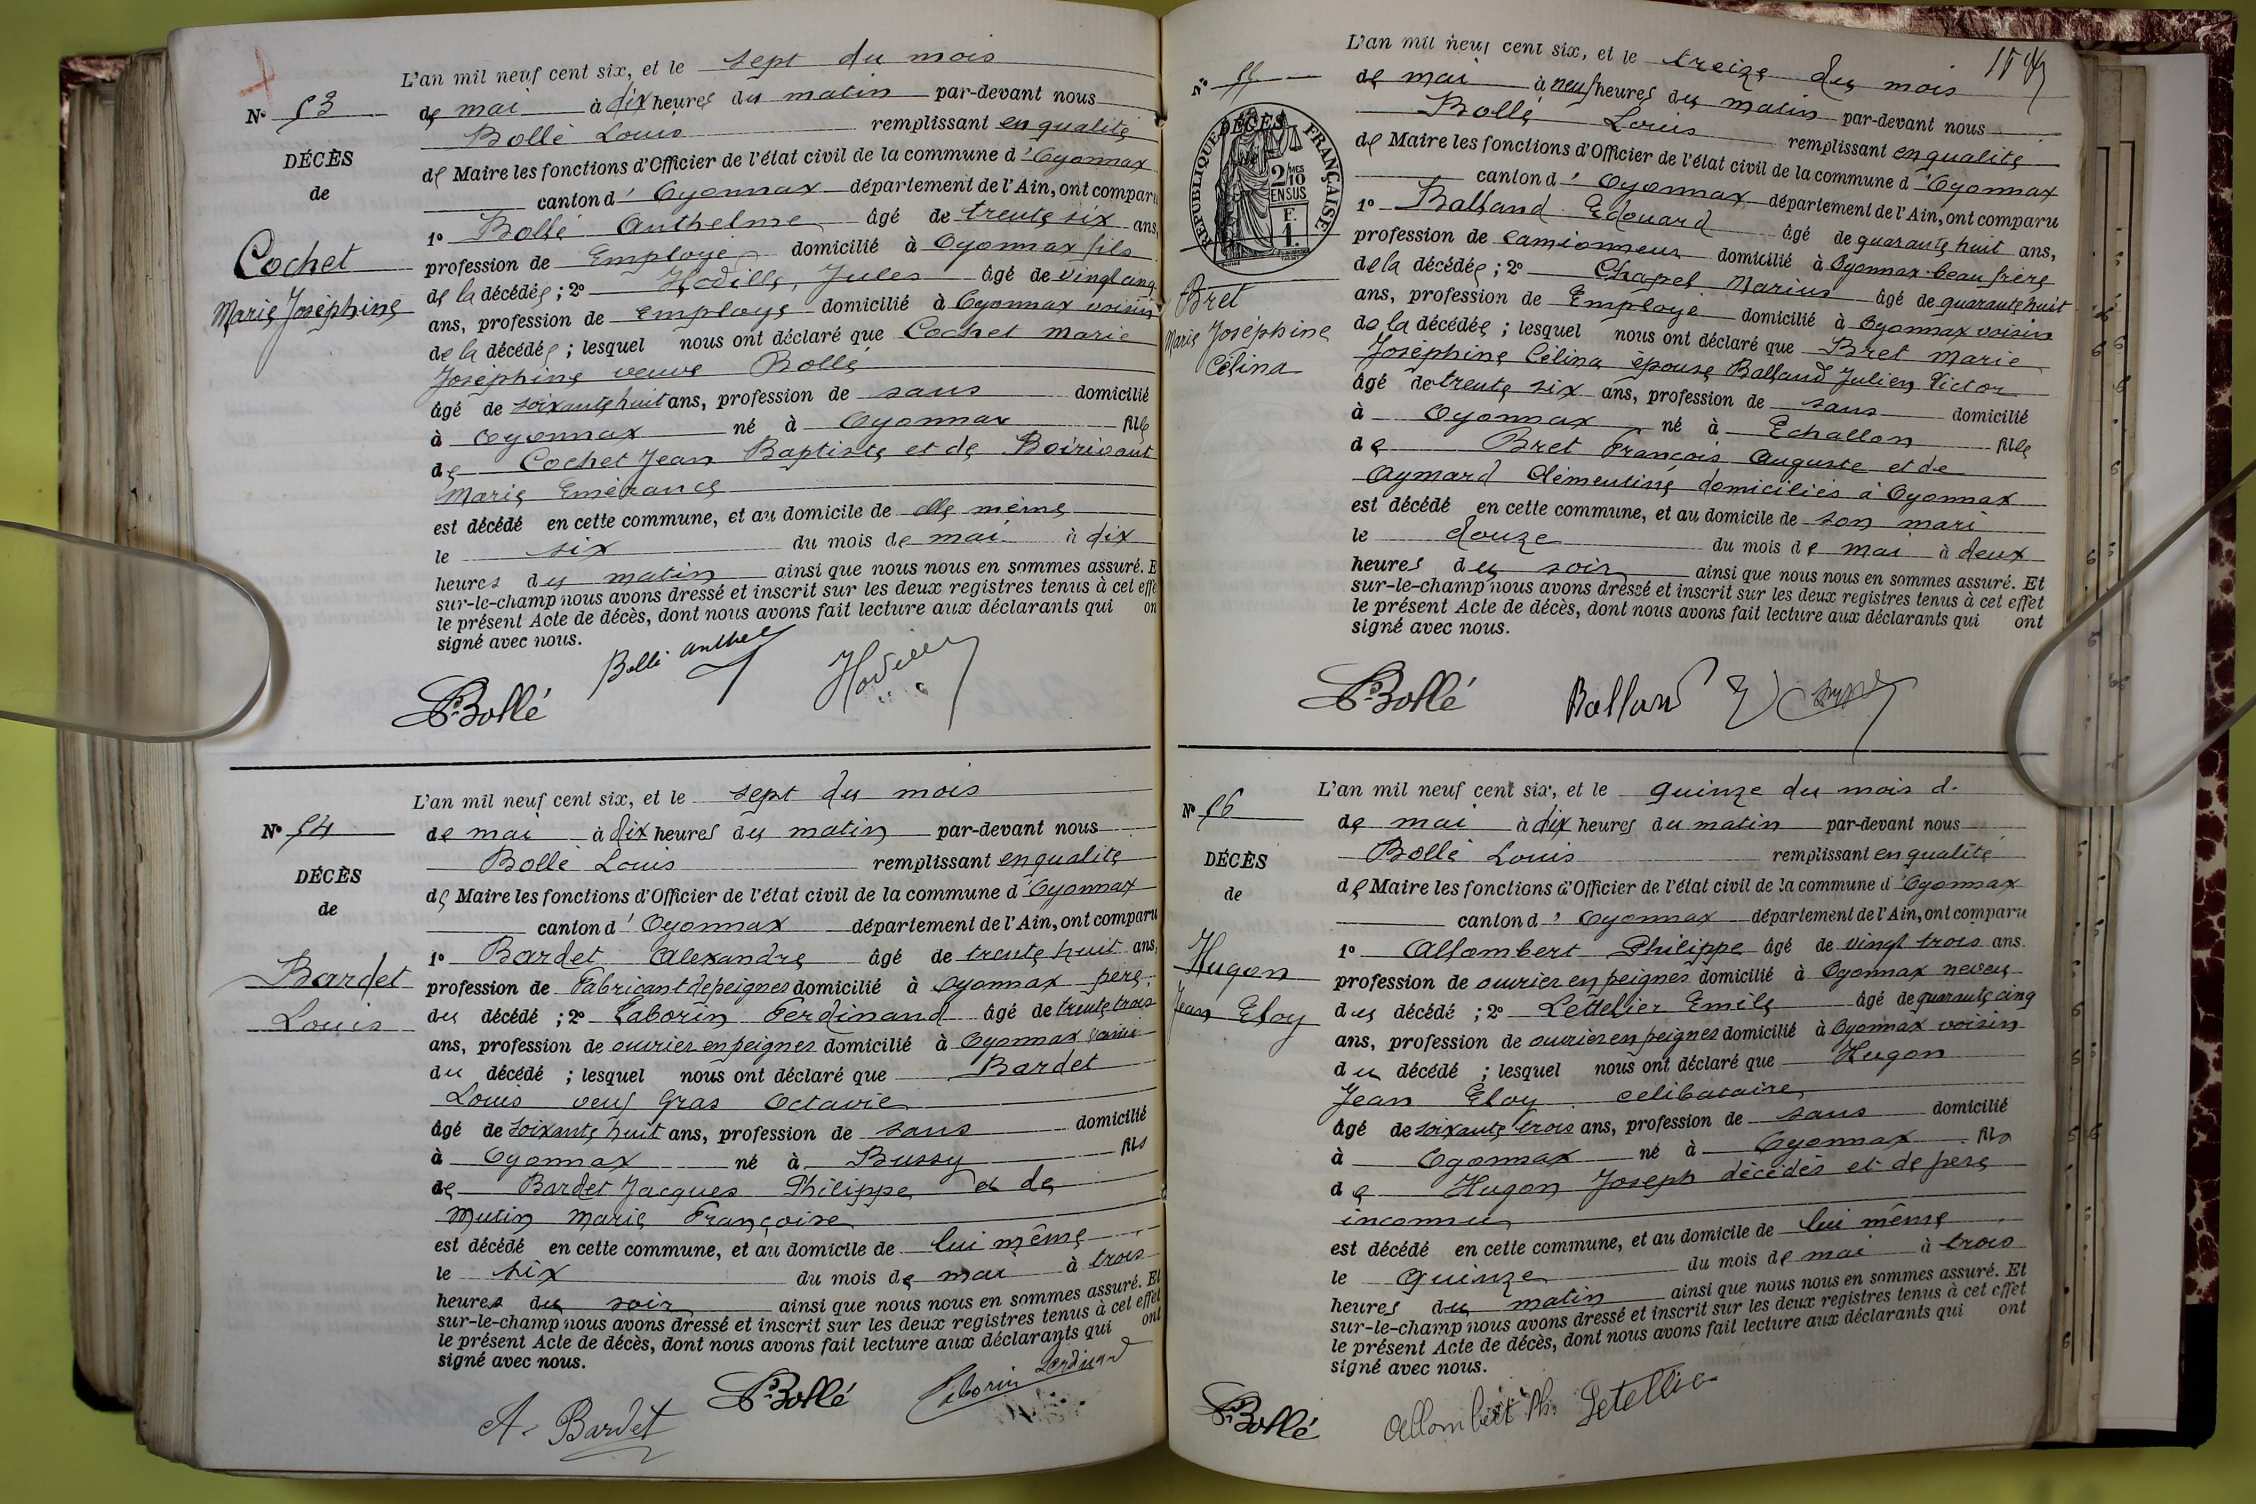 L'an mil neuf cent six, et le sept du mois
N° 53
de mai à dix heures du matin par-devant nous
Bollé Louis remplissant en qualité
DÉCÈS
de Maire les fonctions d'Officier de l'état civil de la commune d'Oyonnax
de
canton d'Oyonnax département de l'Ain, ont comparu
1° Bollé Anthelme âgé de trente six ans,
Cochet
profession de Employé domicilié à Oyonnax fils
de la décédée ; 2° Jules âgé de vingt cinq
Marie Joséphine
ans, profession de employé domicilié à Oyonnax voisin
de la décédée ; lesquel nous ont déclaré que Cochet Marie
Joséphine veuve Bollé
âgé de soixante huit ans, profession de sans domicilié
à Oyonnax né à Oyonnax fille
de Cochet Jean Baptiste et de
Marie Emérance
est décédé en cette commune, et au domicile de elle même
le six du mois de mai à dix
heures du matin ainsi que nous nous en sommes assuré. E
sur-le-champ nous avons dressé et inscrit sur les deux registres tenus à cet effe
le présent Acte de décès, dont nous avons fait lecture aux déclarants qui on
signé avec nous.
Bollé Anthel
Bollé
L'an mil neuf cent six, et le sept du mois
N° 54
de mai à dix heures du matin par-devant nous
Bollé Louis remplissant en qualité
DÉCÈS
de Maire les fonctions d'Officier de l'état civil de la commune d'Oyonnax
de
canton d'Oyonnax département de l'Ain, ont comparu
1° Bardet Alexandre âgé de trente huit ans,
Bardet
profession de Fabricant de peignes domicilié à Oyonnax père
Louis
du décédé ; 2° Laborin Ferdinand âgé de trente trois
ans, profession de ouvrier en peignes domicilié à Oyonnax voisin
du décédé ; lesquel nous ont déclaré que Bardet
Louis veuf Gras Octavie
âgé de soixante huit ans, profession de sans domicilié
à Oyonnax né à Bussy fils
de Bardet Jacques Philippe et de
Mutin Marie Françoise
est décédé en cette commune, et au domicile de lui même
le six du mois de mai à trois
heures du soir ainsi que nous nous en sommes assuré. Et
sur-le-champ nous avons dressé et inscrit sur les deux registres tenus à cet effet
le présent Acte de décès, dont nous avons fait lecture aux déclarants qui ont
signé avec nous.
A. Bardet
Bollé
Laborin Ferdinand
L'an mil neuf cent six, et le treize du mois
N° 55
de mai à neuf heures du matin par-devant nous
Bollé Louis remplissant en qualité
de Maire les fonctions d'Officier de l'état civil de la commune d'Oyonnax
DÉCÈS
RÉPUBLIQUE FRANÇAISE
2/10 MES
EN SUS
F.
1.
canton d'Oyonnax département de l'Ain, ont comparu
1° Balland Edouard âgé de quarante huit ans,
profession de camionneur domicilié à Oyonnax beau frère
de la décédée ; 2° Chapel Marius âgé de quarante huit
Bret
ans, profession de Employé domicilié à Oyonnax voisin
Marie Joséphine
de la décédée ; lesquel nous ont déclaré que Bret Marie
Célina
Joséphine Célina épouse Balland Julien Victor
âgé de trente six ans, profession de sans domicilié
à Oyonnax né à Echallon fille
de Bret François Auguste et de
Aymard Clémentine domiciliés à Oyonnax
est décédé en cette commune, et au domicile de son mari
le douze du mois de mai à deux
heures du soir ainsi que nous nous en sommes assuré. Et
sur-le-champ nous avons dressé et inscrit sur les deux registres tenus à cet effet
le présent Acte de décès, dont nous avons fait lecture aux déclarants qui ont
signé avec nous.
Bollé
Balland
L'an mil neuf cent six, et le quinze du mois d.
N° 56
de mai à dix heures du matin par-devant nous
Bollé Louis remplissant en qualité
DÉCÈS
de Maire les fonctions d'Officier de l'état civil de la commune d'Oyonnax
de
canton d'Oyonnax département de l'Ain, ont comparu
1° Allombert Philippe âgé de vingt trois ans.
Hugon
profession de ouvrier en peignes domicilié à Oyonnax neveu
Jean Eloy
du décédé ; 2° Letellier Emile âgé de quarante cinq
ans, profession de ouvrier en peignes domicilié à Oyonnax voisin
du décédé ; lesquel nous ont déclaré que Hugon
Jean Eloy celibataire
âgé de soixante trois ans, profession de sans domicilié
à Oyonnax né à Oyonnax fils
de Hugon Joseph décédés et de père
inconnu
est décédé en cette commune, et au domicile de lui même
le quinze du mois de mai à trois
heures du matin ainsi que nous nous en sommes assuré. Et
sur-le-champ nous avons dressé et inscrit sur les deux registres tenus à cet effet
le présent Acte de décès, dont nous avons fait lecture aux déclarants qui ont
signé avec nous.
Bollé
Allombert Ph.
Letellier